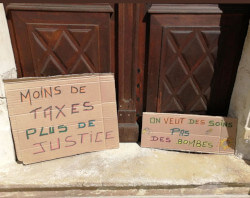 MOINS DE
TAXES
PLUS DE
JUSTICE
ON VEUT DES SOINS
PAS
DES BOMBES